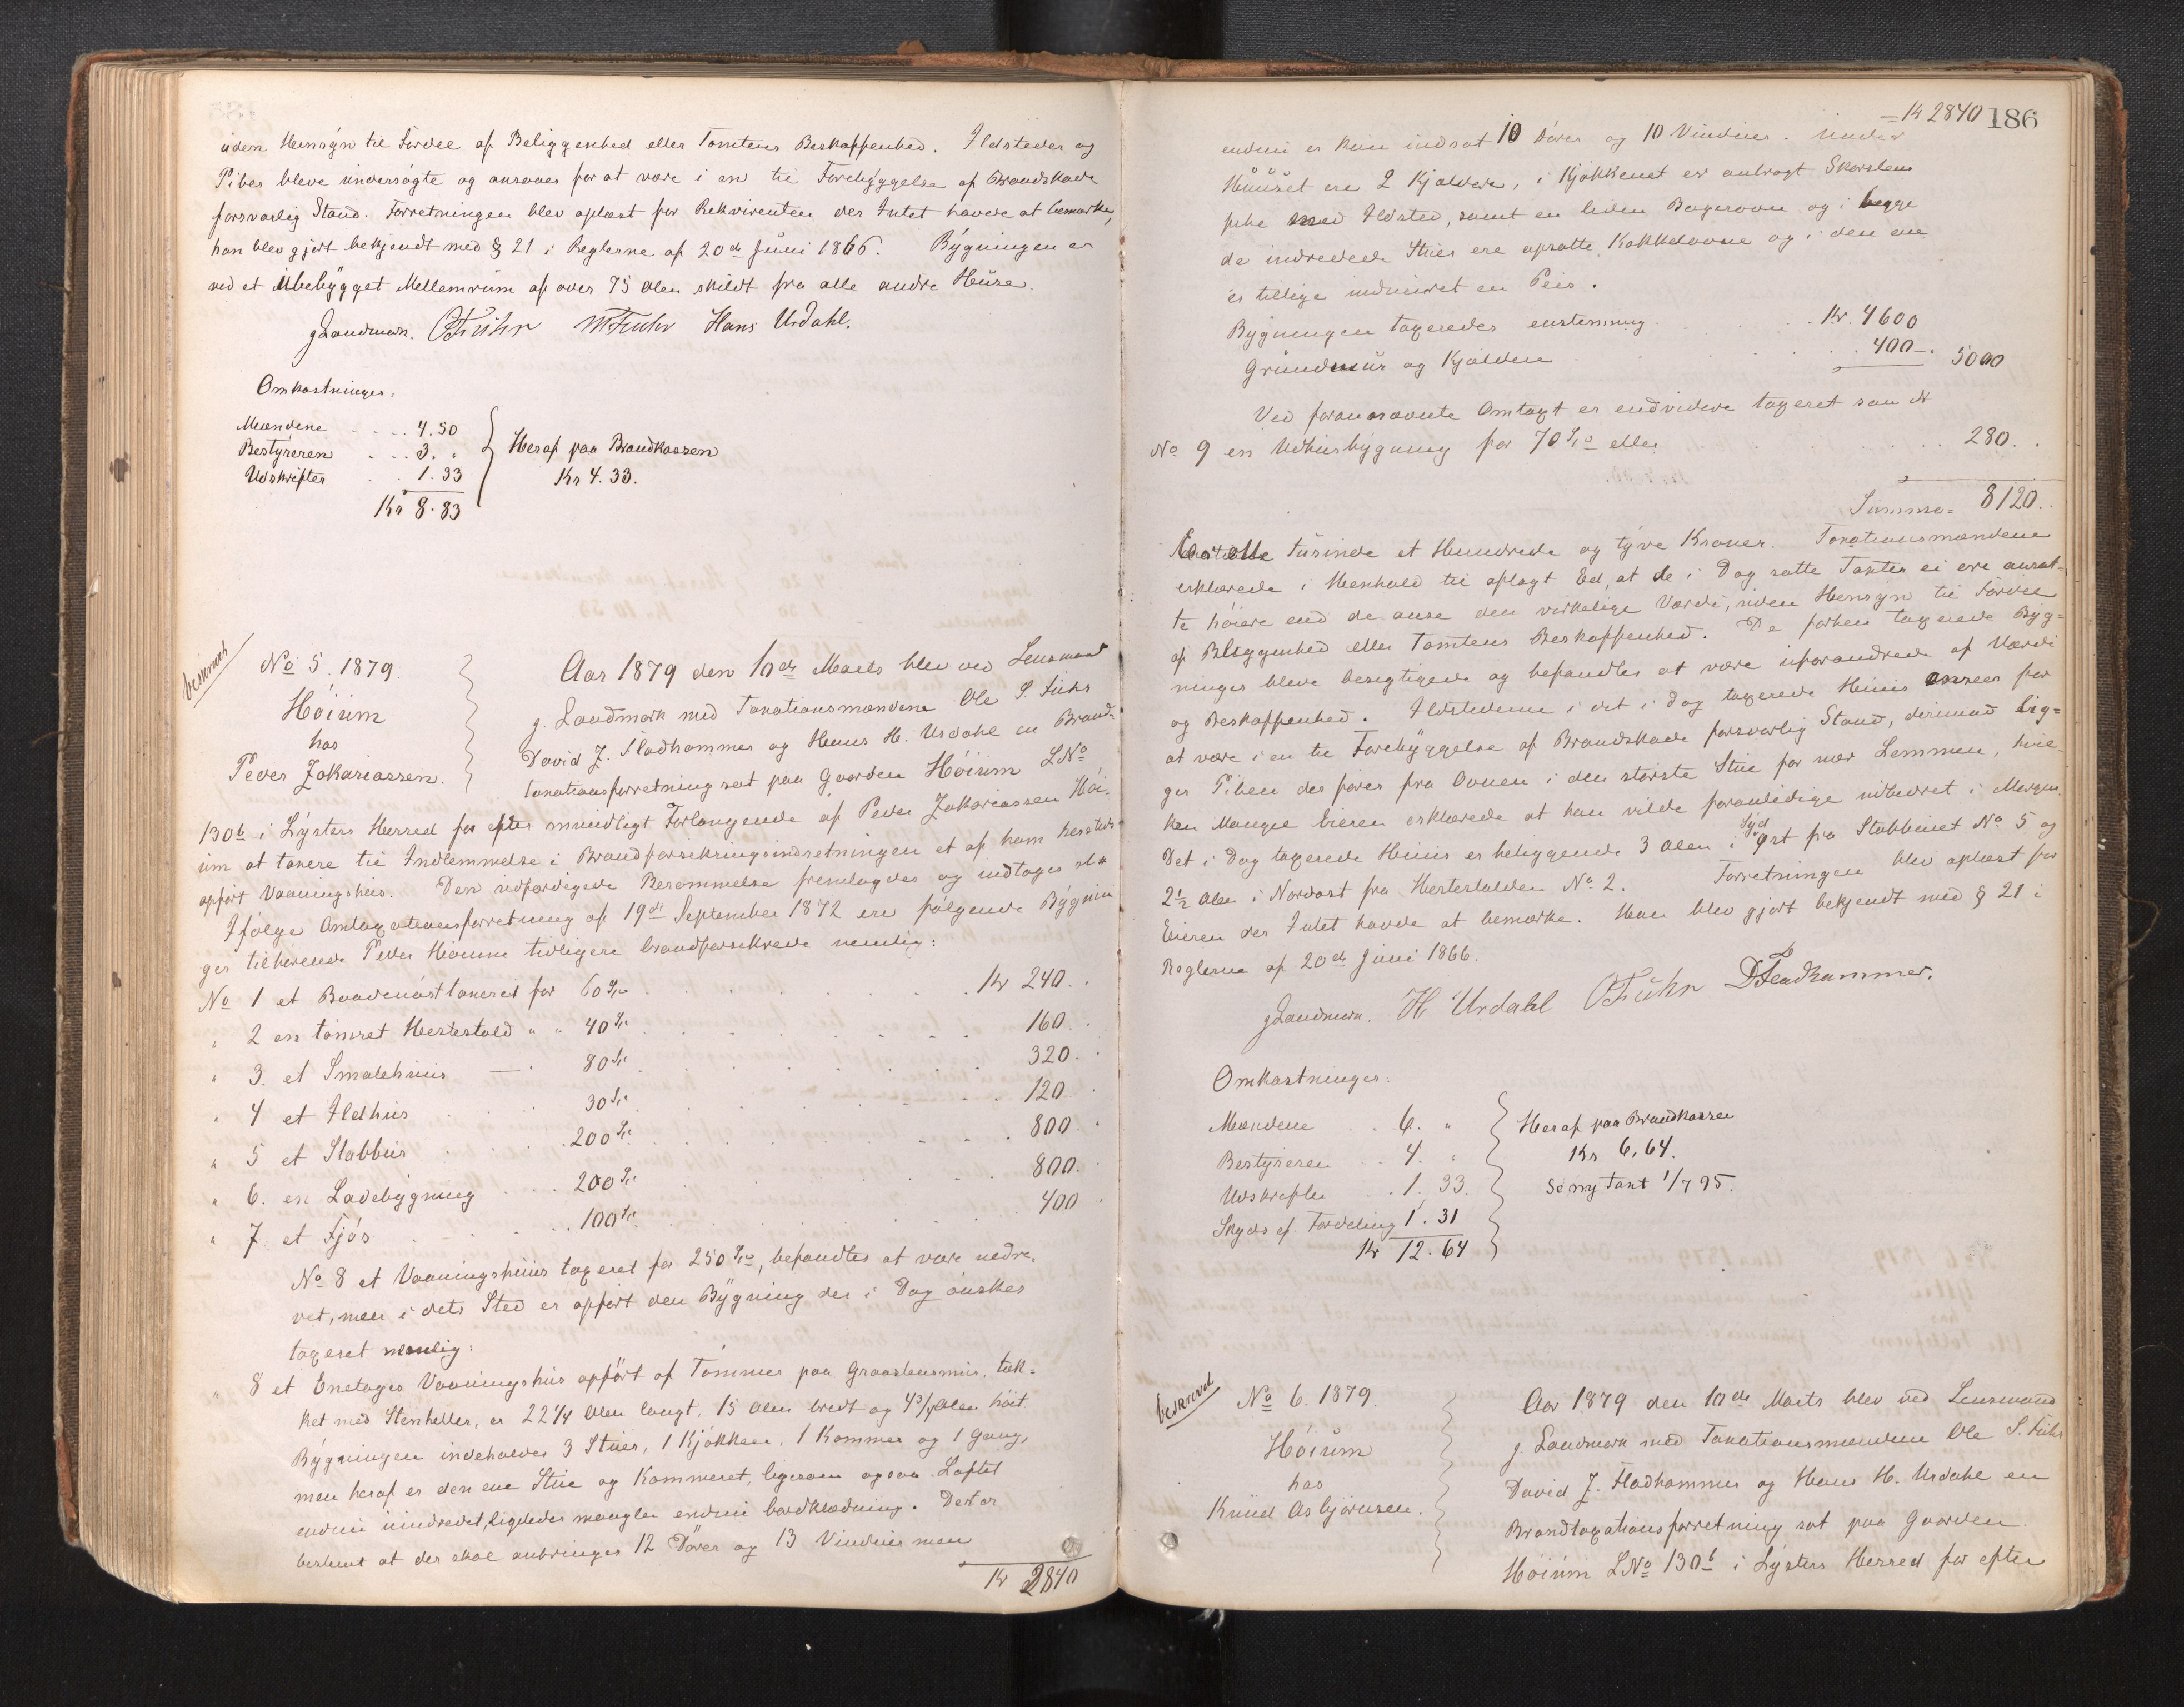 uden Hensyn til Fordel af Beliggenhed eller Tomtens Beskaffenhed. Ildsteder og
Piber bleve undersøgte og ansaaes for at være i en til Forebyggelse af Brandskade
forsvarlig Stand. Forretningen blev oplæst for Rekvirenten der Intet havde at bemærke,
han blev gjort bekjendt med § 21 i Reglerne af 20de Juni 1866. Bygningen er
ved et Ubebygget Mellemrum af over 75 Alen skildt fra alle andre Huse.
g Landmark. OFuhr MFuhr Hans Urdahl.
Omkostninger:
Mændene . . . . 4.50
Bestyreren . . . 3. "
Udskrifter . . 1.33
Kr 8.83
Heraf paa Brandkassen
Kr 4.33.
beskrevet
No 5. 1879.
Høium
hos
Peder Zakariassen.
Aar 1879 den 10de Marts blev ved Lensmand
g. Landmark med Taxationsmændene Ole S. Fuhr
David J. Fladhammer og Hans H. Urdahl en Brand-
taxationsforretning sat paa Gaarden Høium LNo
130b i Lysters Herred for efter mundligt Forlangende af Peder Zakariassen Høi-
um at taxere til Indlemmelse i Brandforsikringsindretningen et af ham
opført Vaaningshus. Den udfærdigede Berammelse fremlagdes og indtages
Ifølge Omtaxationsforretning af 19de September 1872 ere følgende Bygnin
ger tilhørende Peder Høium tidligere brandforsikrede nemlig:
No 1 et Baadenøst taxeret for 60 Spd . . . . Kr 240. .
" 2 en tømret Hestestald " " 40 Spd . . . . 160. .
" 3. et Smalehuus — . 80 Spd . . . . 320. .
" 4 et Ildhus . . . 30 Spd . . . . 120. .
" 5 et Stabbur . . . 200 Spd . . . . 800 .
" 6. en Ladebygning . . 200 Spd . . . . 800. .
" 7 et Fjøs . . . 100 Spd . . . . 400 .
No 8 et Vaaningshuus taxeret for 250 Spd, befandtes at være nedre-
vet, men i dets Sted er opført den Bygning der i Dag ønskes
taxeret nemlig:
" 8 et Enetages Vaaningshus opført af Tømmer paa Graastensmur, tæk-
ket med Stenheller, er 22 1/4 Alen langt, 15 Alen bredt og 4 3/4 Alen høit.
Bygningen indeholder 3 Stuer, 1 Kjøkken, 1 Kammer og 1 Gang,
men heraf er den ene Stue og Kammeret, ligesom ogsaa Loftet
endnu uindredet, ligeledes mangler endnu bordklædning. Det er
bestemt at der skal anbringes 12 Døre og 13 Vinduer men
Kr 2840
= Kr 2840
186
endnu er kun indsat 10 Døre og 10 Vinduer. Under
Huuset ere 2 Kjældere, i Kjøkkenet er anbragt Skorstens
pibe med Ildsted, samt en liden Bagerovn og i begge
de indredede Stuer ere opsatte Kakkelovne og i den ene
er tillige indmuret en Peis.
Bygningen taxeredes enstemmig . . . Kr. 4600
Grundmur og Kjeldere . . . . 400-. 5000
Ved forannævnte Omtaxt er endvidere taxeret som
No 9 en Udhusbygning for 70 Spd eller . . . . 280. .
Summa = 8120. .
otte tusinde et Hundrede og tyve Kroner. Taxationsmændene
erklærede i Henhold til aflagt Ed, at de i Dag satte Taxter ei ere ansat-
te høiere end de anse den virkelige Værdi, uden Hensyn til Fordel
af Beliggenhed eller Tomtens Beskaffenhed. De forhen taxerede Byg-
ninger bleve besigtigede og befandtes at være uforandrede af Værdi
og Beskaffenhed. Ildstederne i det i Dag taxerede Huus ansees for
at være i en til Forebyggelse af Brandskade forsvarlig Stand, derimod lig-
ger Piben der føres fra Ovnen i den største Stue for nær Lemmen, hvil-
ken Mangel Eieren erklærede at han vilde foranledige udbedret i Morgen.
Det i Dag taxerede Huus er beliggende 3 Alen i Sydøst fra Stabburet No 5 og
2 1/2 Alen i Nordost fra Hestestalden No 2. Forretningen blev oplæst for
Eieren der Intet havde at bemærke. Han blev gjort bekjendt med § 21 i
Reglerne af 20de Juni 1866.
g Landmark. H Urdahl OFuhr DFladhammer.
Omkostninger:
Mændene . . 6. "
Bestyreren . . 4. "
Udskrifter . . 1. 33.
Skyds ef. Fordeling 1. 31
Kr 12.64
Heraf paa Brandkassen
Kr 6,64.
Se ny Taxt 1/7 95.
beskrevet
No 6. 1879.
Høium
hos
Knud Asbjørnsen.
Aar 1879 den 10de Marts blev ved Lensmand
g. Landmark med Taxationsmændene Ole S. Fuhr
David J. Fladhammer og Hans H. Urdahl en
Brandtaxationsforretning sat paa Gaarden
Høium LNo 130b i Lysters Herred for efter